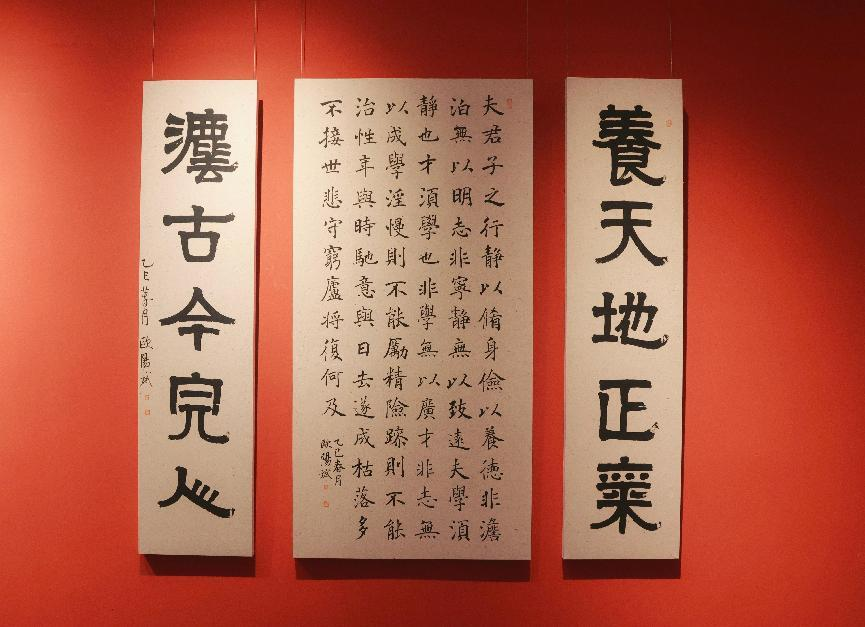 養天地正氣
夫君子之行靜以脩身儉以養德非澹
泊無以明志非寧靜無以致遠夫學須
靜也才須學也非學無以廣才非志無
以成學淫慢則不能勵精險躁則不能
治性年與時馳意與日去遂成枯落多
不接世悲守窮廬將復何及
乙巳春月
歐陽斌
灋古今完人
乙巳春月歐陽斌